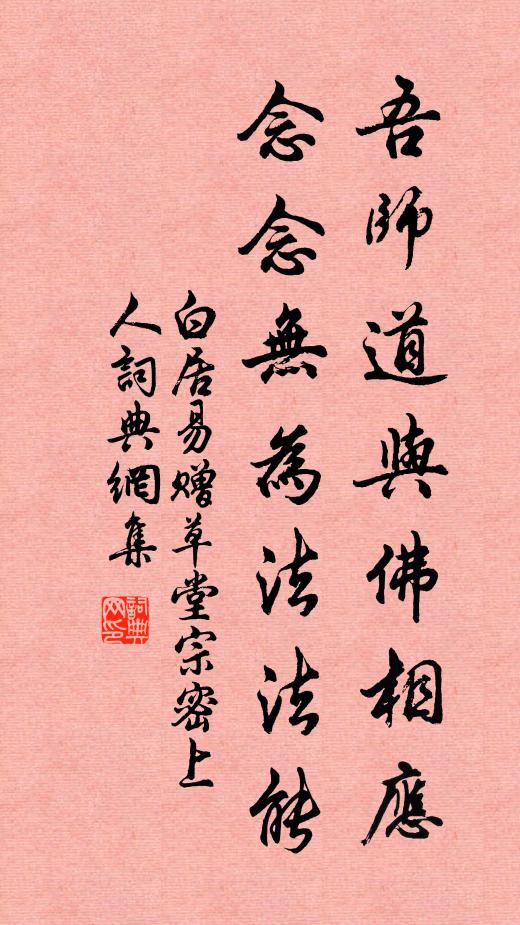 吾師道與佛相應
念念無為法法能
白居易贈草堂宗密上
人詞典網集
詞典網印